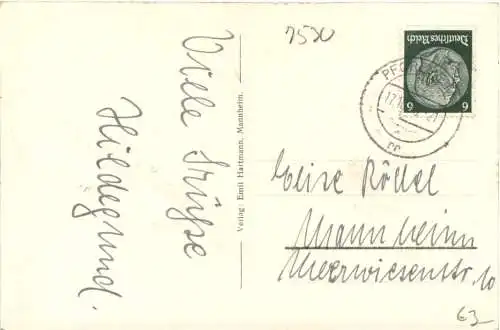 7530
Viele Grüße
Hildegund.
Verlag: Emil Hartmann, Mannheim.
Deutsches Reich
6 6
PFOR
17.1
Elise Röckel
Mannheim
Meerwiesenstr. 10
63-